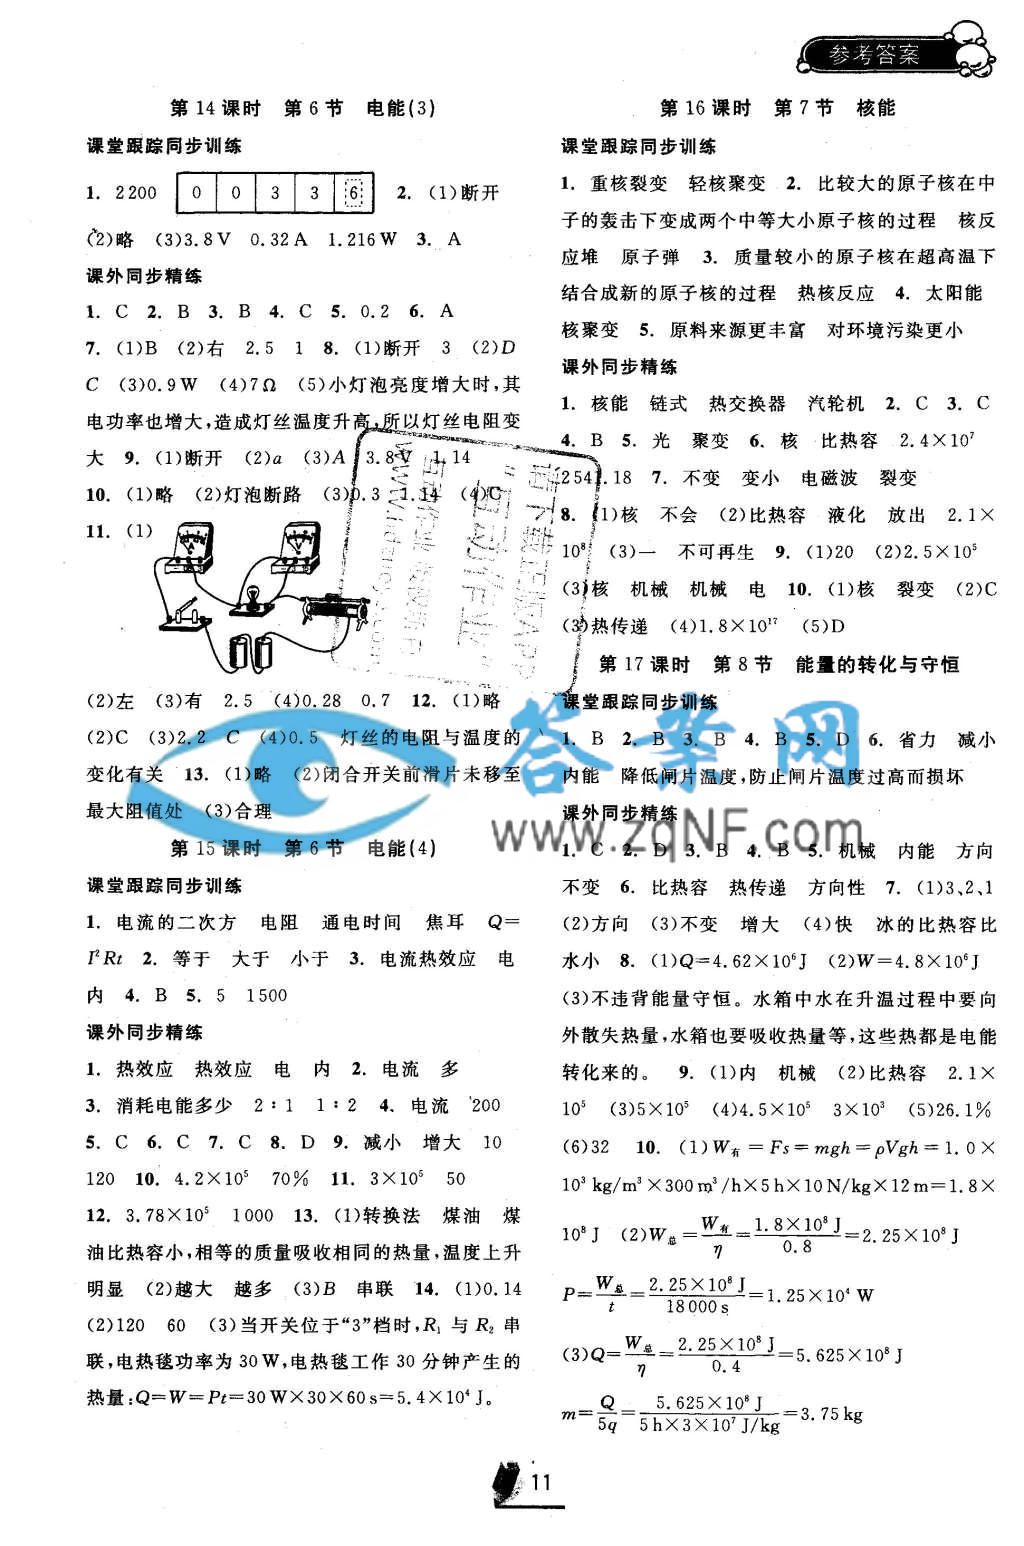 参考答案
第14课时　第6节　电能(3)
课堂跟踪同步训练
1. 2200 0 0 3 3 6 2. (1)断开
(2)略 (3)3.8V 0.32A 1.216W 3. A
课外同步精练
1. C 2. B 3. B 4. C 5. 0.2 6. A
7. (1)B (2)右 2.5 1 8. (1)断开 3 (2)D
C (3)0.9W (4)7Ω (5)小灯泡亮度增大时,其
电功率也增大,造成灯丝温度升高,所以灯丝电阻变
大 9. (1)断开 (2)a (3)A 3.8V 1.14
10. (1)略 (2)灯泡断路 (3)0.3 1.14 (4)C
11. (1)
(2)左 (3)有 2.5 (4)0.28 0.7 12. (1)略
(2)C (3)2.2 C (4)0.5 灯丝的电阻与温度的
变化有关 13. (1)略 (2)闭合开关前滑片未移至
最大阻值处 (3)合理
第15课时　第6节　电能(4)
课堂跟踪同步训练
1. 电流的二次方 电阻 通电时间 焦耳 Q=
I²Rt 2. 等于 大于 小于 3. 电流热效应 电
内 4. B 5. 5 1500
课外同步精练
1. 热效应 热效应 电 内 2. 电流 多
3. 消耗电能多少 2∶1 1∶2 4. 电流 200
5. C 6. C 7. C 8. D 9. 减小 增大 10
120 10. 4.2×10⁵ 70% 11. 3×10⁵ 50
12. 3.78×10⁵ 1000 13. (1)转换法 煤油 煤
油比热容小,相等的质量吸收相同的热量,温度上升
明显 (2)越大 越多 (3)B 串联 14. (1)0.14
(2)120 60 (3)当开关位于“3”档时,R₁与R₂串
联,电热毯功率为30W,电热毯工作30分钟产生的
热量:Q=W=Pt=30W×30×60s=5.4×10⁴J。
第16课时　第7节　核能
课堂跟踪同步训练
1. 重核裂变 轻核聚变 2. 比较大的原子核在中
子的轰击下变成两个中等大小原子核的过程 核反
应堆 原子弹 3. 质量较小的原子核在超高温下
结合成新的原子核的过程 热核反应 4. 太阳能
核聚变 5. 原料来源更丰富 对环境污染更小
课外同步精练
1. 核能 链式 热交换器 汽轮机 2. C 3. C
4. B 5. 光 聚变 6. 核 比热容 2.4×10⁷
2541.18 7. 不变 变小 电磁波 裂变
8. (1)核 不会 (2)比热容 液化 放出 2.1×
10⁸ (3)一 不可再生 9. (1)20 (2)2.5×10⁵
(3)核 机械 机械 电 10. (1)核 裂变 (2)C
(3)热传递 (4)1.8×10¹⁷ (5)D
第17课时　第8节　能量的转化与守恒
课堂跟踪同步训练
1. B 2. B 3. B 4. B 5. D 6. 省力 减小
内能 降低闸片温度,防止闸片温度过高而损坏
课外同步精练
1. C 2. D 3. B 4. B 5. 机械 内能 方向
不变 6. 比热容 热传递 方向性 7. (1)3、2、1
(2)方向 (3)不变 增大 (4)快 冰的比热容比
水小 8. (1)Q=4.62×10⁶J (2)W=4.8×10⁶J
(3)不违背能量守恒。水箱中水在升温过程中要向
外散失热量,水箱也要吸收热量等,这些热都是电能
转化来的。 9. (1)内 机械 (2)比热容 2.1×
10⁵ (3)5×10⁵ (4)4.5×10⁵ 3×10³ (5)26.1%
(6)32 10. (1)W有=Fs=mgh=ρVgh=1.0×
10³kg/m³×300m³/h×5h×10N/kg×12m=1.8×
10⁸J (2)W总=W有/η=1.8×10⁸J/0.8=2.25×10⁸J
P=W总/t=2.25×10⁸J/18000s=1.25×10⁴W
(3)Q=W总/η=2.25×10⁸J/0.4=5.625×10⁸J
m=Q/5q=5.625×10⁸J/5h×3×10⁷J/kg=3.75kg
答案网
www.zqNF.com
11